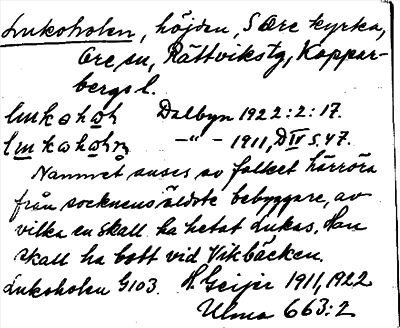 Lukoholen, höjden, S Ore kyrka,
Ore sn, Rättviks tg, Koppar-
bergs l.
Dalbyn 1922:2:17.
—"— 1911, D IV s. 47.
Namnet anses av folket härröra
från socknens äldste bebyggare, av
vilka en skall ha hetat Lukas. Han
skall ha bott vid Vikbäcken.
Lukoholen G103. H. Geijer 1911, 1922
Ulma 663:2